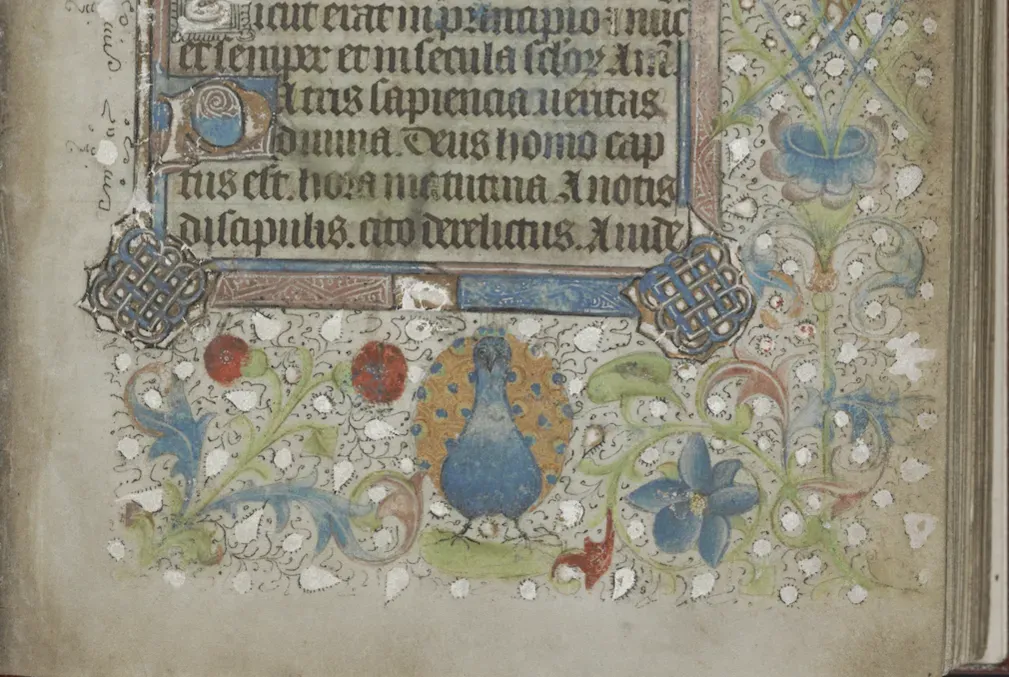 Sicut erat in principio ⁊ nūc
et semper et in secula sclōꝝ Am̄.
Patris sapiencia ueritas
diuina. Deus homo cap
tus est. hora matutina A notis
discipulis. cito derelictus. A iude